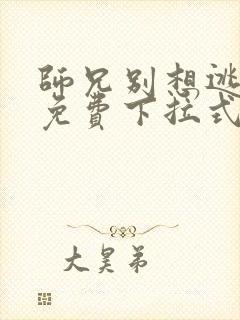 師兄別想逃
免費下拉式
大昊弟